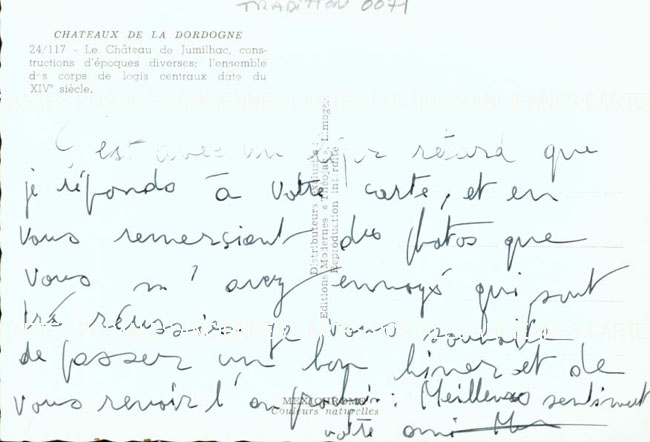 TRADITION 0071
CHATEAUX DE LA DORDOGNE
24/117 - Le Château de Jumilhac, cons-
tructions d'époques diverses; l'ensemble
des corps de logis centraux date du
XIVe siècle.
CARTES POSTALES ANCIENNES CARTES POSTALES ANCIENNES CARTE
C'est avec un léger retard que
je réponds à votre carte, et en
vous remersiant des photos que
vous m'avez envoyé qui sont
tré réussie je vous souhaite
de passer un bon hiver et de
vous revoir l'an prochain : Meilleurs sentiment
votre ami
Distributeurs
Editions Modernes « Théojac » Limoges
Reproduction interdite
MEXICHROME
Couleurs naturelles